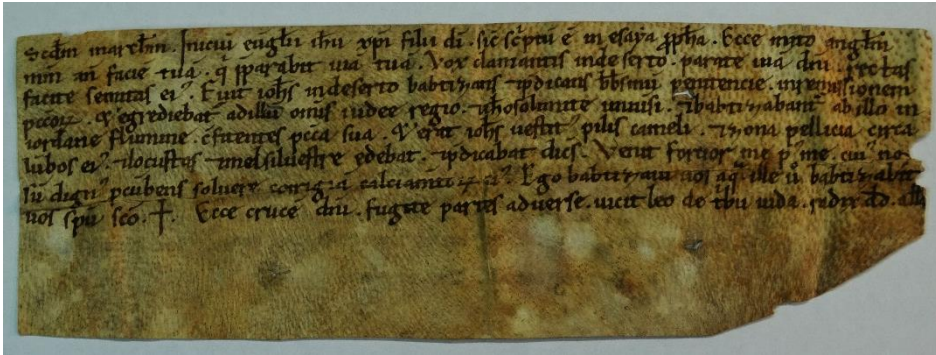 Scdm marchm. Iniciu euglii ihu xpi filii di. sic sc̄ptu ē in esaya ppha. Ecce mitto anglm
mm an̄ facie tuā. q̄ p̄parabit uiā tuā. Vox clamantis in deserto. parate uiā dn̄i rectas
facite semitas ei⁹. Fuit iohs in deserto babtizans ⁊ p̄dicans bbsmū penitencie in remissionem
pccoꝝ. ⁊ egrediebat᷑ ad illū omis iudee regio. ⁊ iherosolimite uniuersi. ⁊ babtizabant᷑ ab illo in
iordane flumine. c̄fitentes pcca sua. ⁊ erat iohs uestit⁹ pilis cameli. ⁊ zona pellicia circa
lūbos ei⁹. ⁊ locustas ⁊ mel siluestre edebat. ⁊ p̄dicabat dics. Venit fortior me p⁹ me. cui⁹ nō
sū dign⁹ pcūbens soluere corrigiā calciamtoꝝ ei⁹. Ego babtizaui uos aq̄. ille u̅ babtizabit
uos spū scō. ✝. Ecce crucē dn̄i. fugite partes aduerse. uicit leo de t̄bu iuda. radix dd. alla